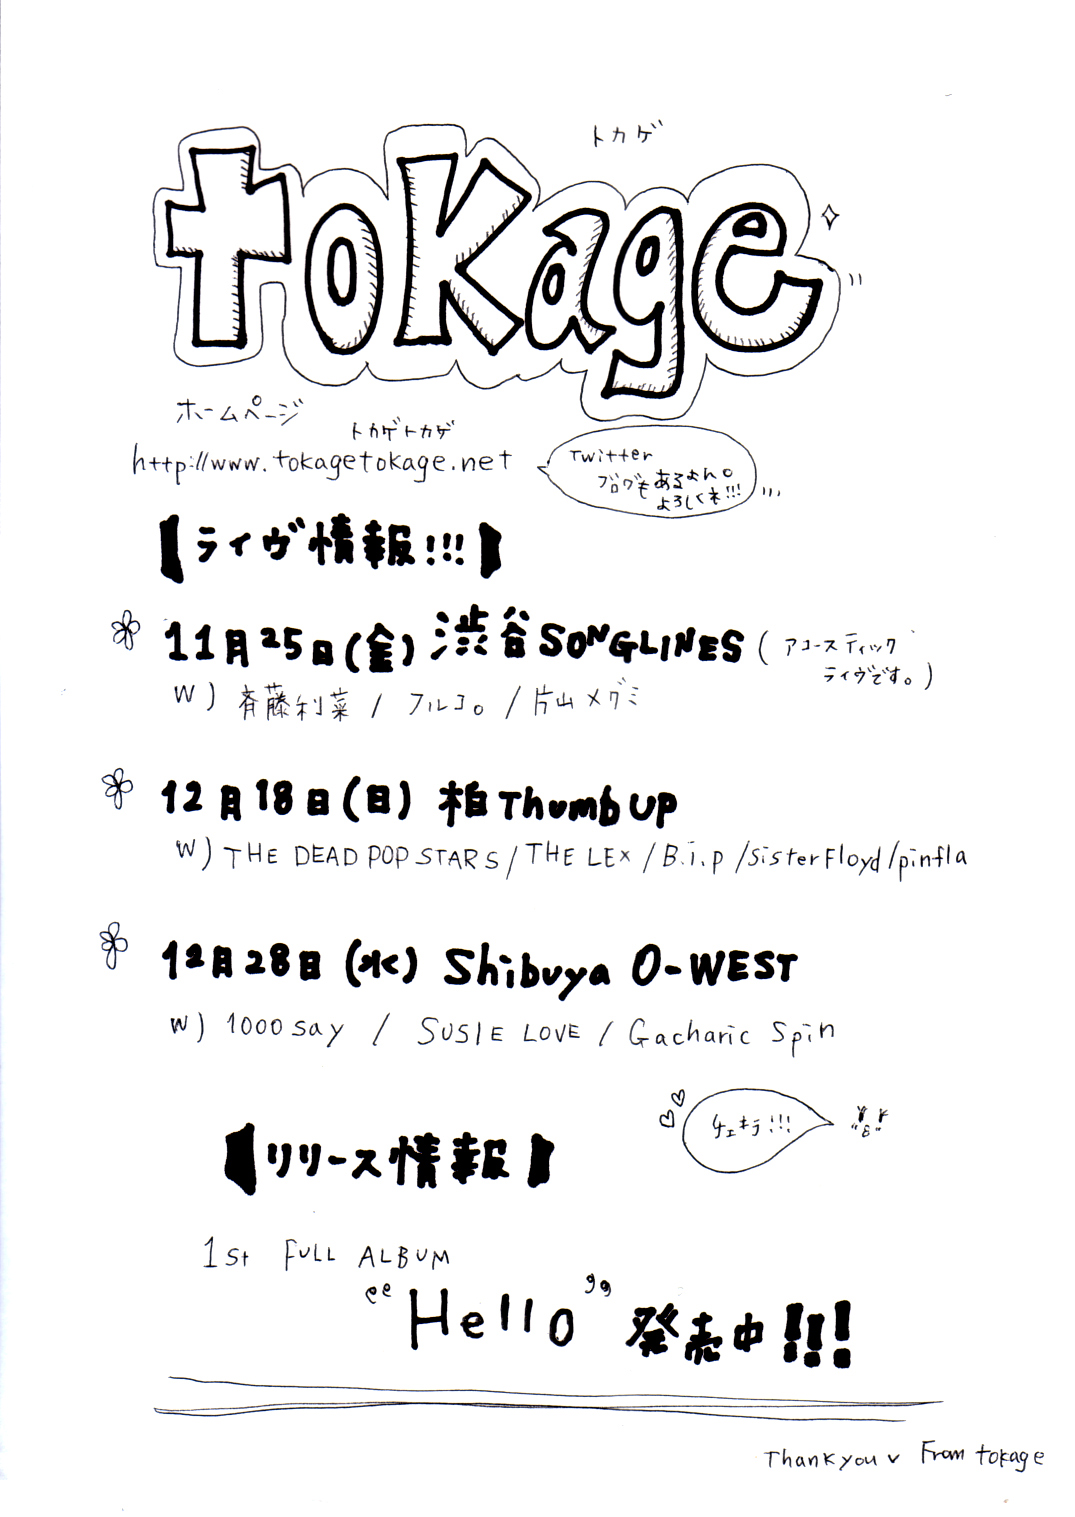 トカゲ
tokage
ホームページ
トカゲトカゲ
http://www.tokagetokage.net
Twitter
ブログもあるよん。
よろしくネ!!!
【ライヴ情報!!!】
11月25日(金) 渋谷SONGLINES (アコースティック
ライヴです。)
W) 斉藤利菜 / フルコ。 / 片山メグミ
12月18日(日) 柏ThumbUP
W) THE DEAD POP STARS / THE LEx / B.i.p / SisterFloyd / pinfla
12月28日(水) Shibuya O-WEST
W) 1000say / SUSIE LOVE / Gacharic Spin
チェキラ!!!
【リリース情報】
1st FULL ALBUM
"Hello" 発売中!!!
Thank you From tokage